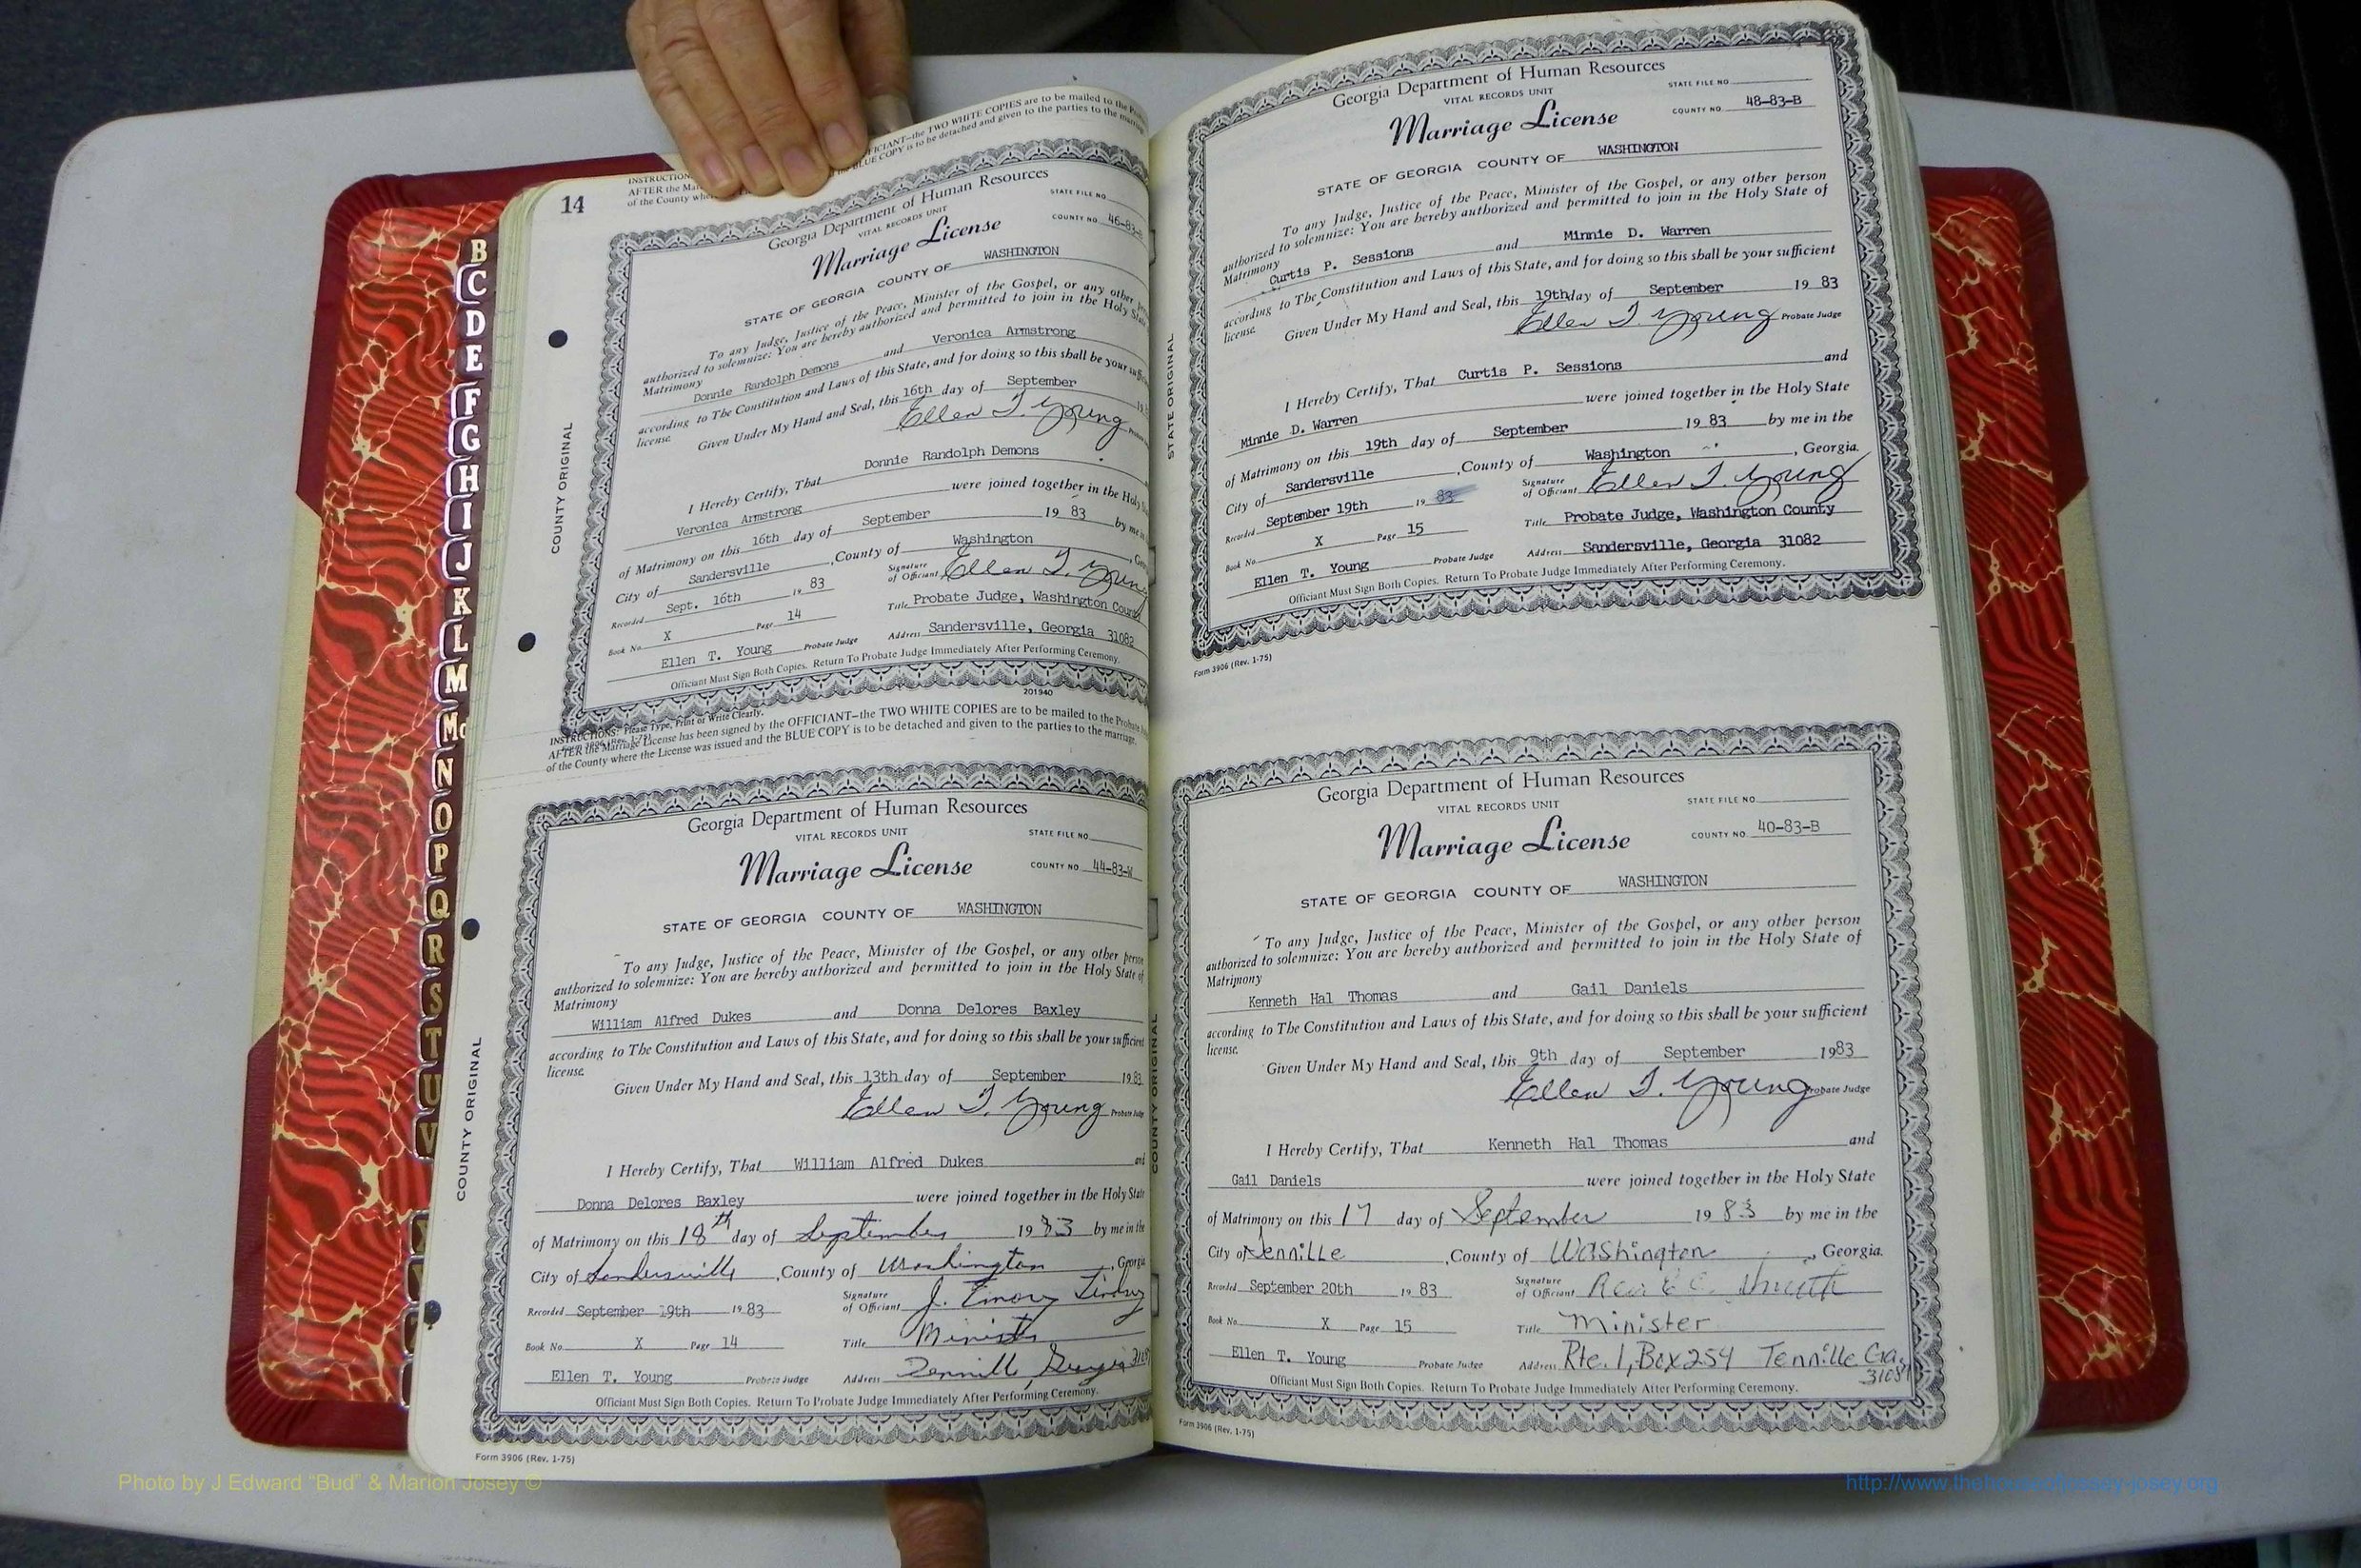 14
INSTRUCTION
AFTER the
of the County
OFFICIANT—the TWO WHITE COPIES are to be mailed to the
BLUE COPY is to be detached and given to the parties to the
Georgia Department of Human Resources
VITAL RECORDS UNIT
STATE FILE NO
Marriage License
COUNTY NO. 46-83-
STATE OF GEORGIA COUNTY OF WASHINGTON
To any Judge, Justice of the Peace, Minister of the Gospel, or any other
authorized to solemnize: You are hereby authorized and permitted to join in the Holy
Matrimony
Donnie Randolph Demons and Veronica Armstrong
according to The Constitution and Laws of this State, and for doing so this shall be your
license.
Given Under My Hand and Seal, this 16th day of September
Ellen T. Young
I Hereby Certify, That Donnie Randolph Demons
Veronica Armstrong were joined together in the
of Matrimony on this 16th day of September 19 83 by me
City of Sandersville, County of Washington
Recorded Sept. 16th 19 83 Signature of Officiant Ellen T. Young
Book No. X Page 14 Title Probate Judge, Washington
Ellen T. Young Probate Judge Address Sandersville, Georgia 31082
Officiant Must Sign Both Copies. Return To Probate Judge Immediately After Performing Ceremony.
201940
COUNTY ORIGINAL
INSTRUCTIONS: Please Type, Print or Write Clearly.
Form 3906 (Rev. 1-75)
AFTER the Marriage License has been signed by the OFFICIANT—the TWO WHITE COPIES are to be mailed to the Probate
of the County where the License was issued and the BLUE COPY is to be detached and given to the parties to the marriage.
Georgia Department of Human Resources
VITAL RECORDS UNIT
STATE FILE NO
Marriage License
COUNTY NO. 44-83-W
STATE OF GEORGIA COUNTY OF WASHINGTON
To any Judge, Justice of the Peace, Minister of the Gospel, or any other person
authorized to solemnize: You are hereby authorized and permitted to join in the Holy State of
Matrimony
William Alfred Dukes and Donna Delores Baxley
according to The Constitution and Laws of this State, and for doing so this shall be your sufficient
license.
Given Under My Hand and Seal, this 13th day of September 19 83
Ellen T. Young Probate Judge
I Hereby Certify, That William Alfred Dukes and
Donna Delores Baxley were joined together in the Holy State
of Matrimony on this 18th day of September 19 83 by me in the
City of Sandersville, County of Washington, Georgia
Recorded September 19th 19 83 Signature of Officiant J. Emory
Book No. X Page 14 Title Minister
Ellen T. Young Probate Judge Address Tennille, Georgia
Officiant Must Sign Both Copies. Return To Probate Judge Immediately After Performing Ceremony.
Form 3906 (Rev. 1-75)
COUNTY ORIGINAL
Georgia Department of Human Resources
VITAL RECORDS UNIT
STATE FILE NO
Marriage License
COUNTY NO. 48-83-B
STATE OF GEORGIA COUNTY OF WASHINGTON
To any Judge, Justice of the Peace, Minister of the Gospel, or any other person
authorized to solemnize: You are hereby authorized and permitted to join in the Holy State of
Matrimony
Curtis P. Sessions and Minnie D. Warren
according to The Constitution and Laws of this State, and for doing so this shall be your sufficient
license.
Given Under My Hand and Seal, this 19th day of September 19 83
Ellen T. Young Probate Judge
I Hereby Certify, That Curtis P. Sessions and
Minnie D. Warren were joined together in the Holy State
of Matrimony on this 19th day of September 19 83 by me in the
City of Sandersville, County of Washington, Georgia.
Recorded September 19th 19 83 Signature of Officiant Ellen T. Young
Book No. X Page 15 Title Probate Judge, Washington County
Ellen T. Young Probate Judge Address Sandersville, Georgia 31082
Officiant Must Sign Both Copies. Return To Probate Judge Immediately After Performing Ceremony.
Form 3906 (Rev. 1-75)
STATE ORIGINAL
Georgia Department of Human Resources
VITAL RECORDS UNIT
STATE FILE NO.
Marriage License
COUNTY NO. 40-83-B
STATE OF GEORGIA COUNTY OF WASHINGTON
To any Judge, Justice of the Peace, Minister of the Gospel, or any other person
authorized to solemnize: You are hereby authorized and permitted to join in the Holy State of
Matrimony
Kenneth Hal Thomas and Gail Daniels
according to The Constitution and Laws of this State, and for doing so this shall be your sufficient
license.
Given Under My Hand and Seal, this 9th day of September 1983
Ellen T. Young Probate Judge
I Hereby Certify, That Kenneth Hal Thomas and
Gail Daniels were joined together in the Holy State
of Matrimony on this 17 day of September 19 83 by me in the
City of Tennille, County of Washington, Georgia.
Recorded September 20th 19 83 Signature of Officiant Rev. Smith
Book No. X Page 15 Title Minister
Ellen T. Young Probate Judge Address Rte. 1, Box 254 Tennille Ga.
Officiant Must Sign Both Copies. Return To Probate Judge Immediately After Performing Ceremony.
Form 3906 (Rev. 1-75)
COUNTY ORIGINAL
B
C
D
E
F
G
H
I
J
K
L
M
Mc
N
O
P
Q
R
S
T
U
V
Photo by J Edward “Bud” & Marion Josey ©
http://www.thehouseofjossey-josey.org